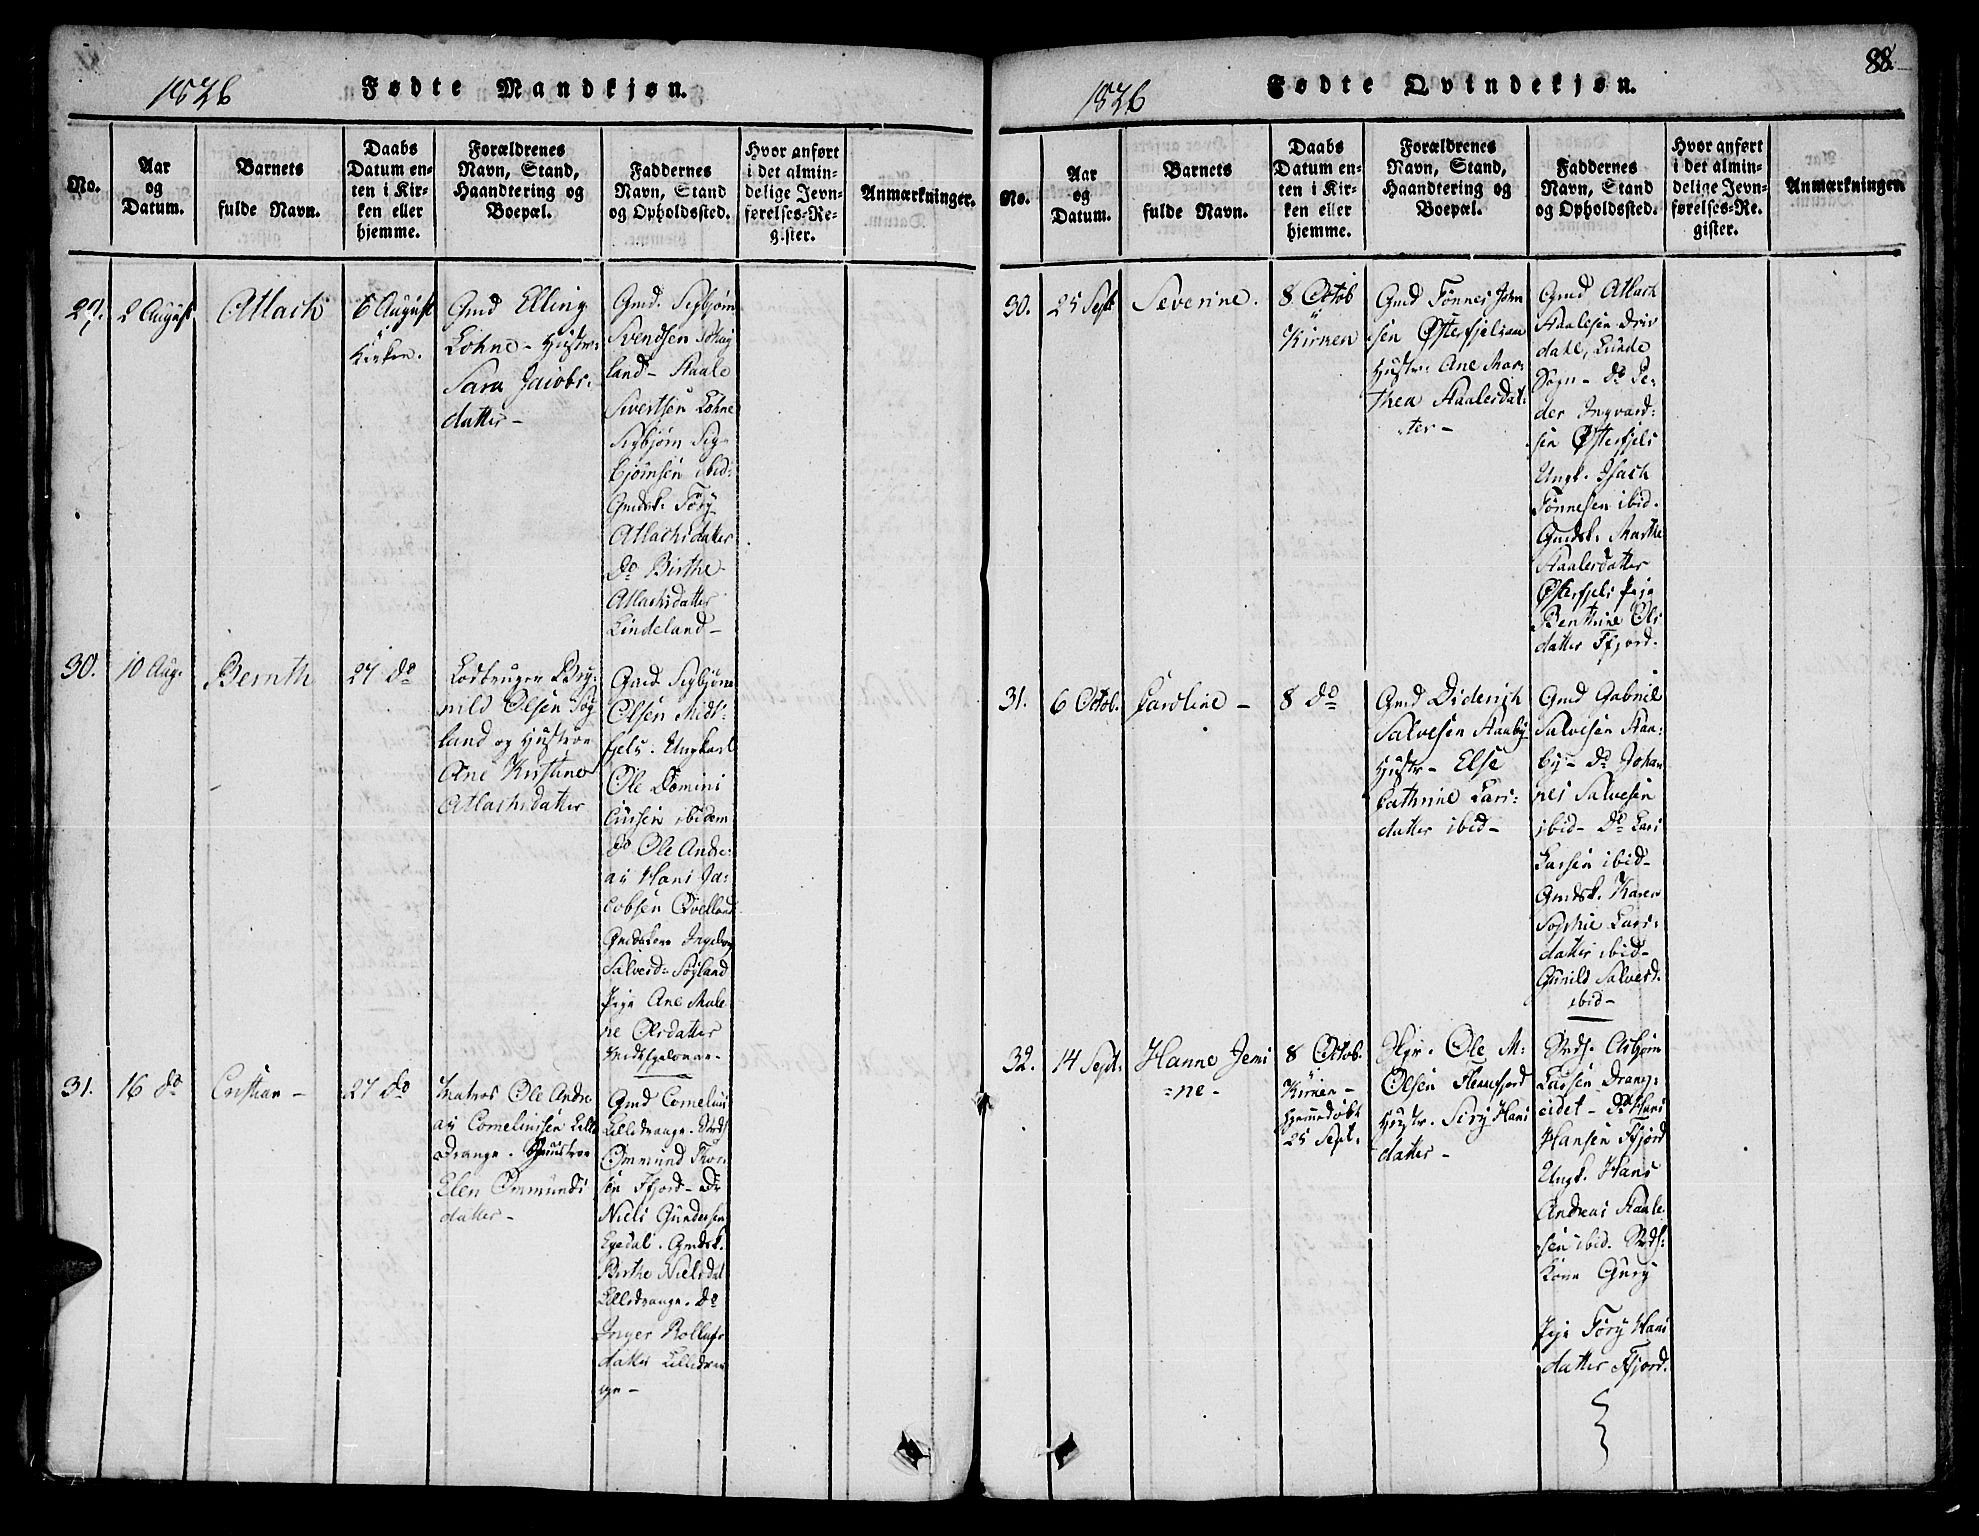 1826
Fødte Mandkjøn.
No.
Aar
og
Datum.
Barnets
fulde Navn.
Daabs
Datum en-
ten i Kir-
ken eller
hjemme.
Forældrenes
Navn, Stand,
Haandtering og
Boepæl.
Faddernes
Navn, Stand
og Opholdssted.
Hvor anført
i det almin-
delige Jevn-
førelses-Re-
gister.
Anmærkninger.
29.
2 August
Atlach
6 August
i
Kirken.
Gmd Elling
Lohne - Hustr:
Sara Jacobs:
datter -
Gmd. Sigbjørn
Svendsen
land - Staale
Sivertsen Lohne
Sigbjørn Sig-
bjørnsen ibid:
Gmdsk. Tory
Atlachsdatter
do Birthe
Atlachsdatter
Lindeland -
30.
10 Aug.
Bernth
27 do
Bry-
nild Olsen Søg
land og Hustroe
Ane Kirstine
Atlachsdatter
Gmd Sigbjørn
Olsen Mids-
fjels. Ungkarl
Ole Domini
cusen ibidem
do Ole Andre-
as Hans Ja-
cobsen Qvelland
Gmdskone Ingeborg
Salvesd: Søgland
Pige Ane Male
ne Olsdatter
31.
16 do
Cristian -
27 do
Matros Ole Andre
as Corneliusen Lille
Drange. Huustroe
Elen Ommunds
datter -
Gmd Cornelius
Lilledrange. Strds
Ommund Thor-
sen Ffjord - do
Niels Gundersen
Egedal. Gmdsk.
Birthe Nielsdat
Lilledrange. do
Inger Rollufs
datter Lilledran
ge -
88.
1826
Fødte Qvindekjøn.
No.
Aar
og
Datum.
Barnets
fulde Navn.
Daabs
Datum en-
ten i Kir-
ken eller
hjemme.
Forældrenes
Navn, Stand,
Haandtering og
Boepæl.
Faddernes
Navn, Stand
og Opholdssted.
Hvor anført
i det almin-
delige Jevn-
førelses-Re-
gister.
Anmærkninger.
30.
25 Sept
Severine.
8 Octob
i
Kirken
Gmd Tønnes John
sen Østefjelsaa
Hustr: Ane Mar-
thea Staalesdat:
ter -
Gmd Atlach
Staalesen Driv
dal, Lunde
Sogn - do Pe-
der Ingvard:
sen Østefjels
Ungk. Isach
Tønnesen ibid.
Gmdsk. Marthe
Staalesdatter
Østefjels Pige
Benthine Ols
datter Ffjord.
31.
6 Octob.
Caroline -
8 do
Gmd Diderich
Salvesen Staaby
Hustr - Else
Cathrine Lars:
datter ibid -
Gmd Gabriel
Salvesen Staa-
by - do Johan
nes Salvesen
ibid - do Lars
Larsen ibid -
Gmdsk. Karen
Sophie Lars:
datter ibid -
Gunild Salvesd.
ibid -
32.
14 Sept.
Hanne Jemi
=ne -
8 Octob.
i
Kirken -
Hjemmedøbt
25 Sept.
Ole M:
Olsen Flekkefjord
Hustr. Siry Hans
datter -
Strds. Asbjørn
Larsen Drang:
eidet - do Hans
Hansen Ffjord
Ungk. Hans
Andreas Staale
sen ibid. Strds:
kone Gury
Pige Tory Hans
datter Ffjord.